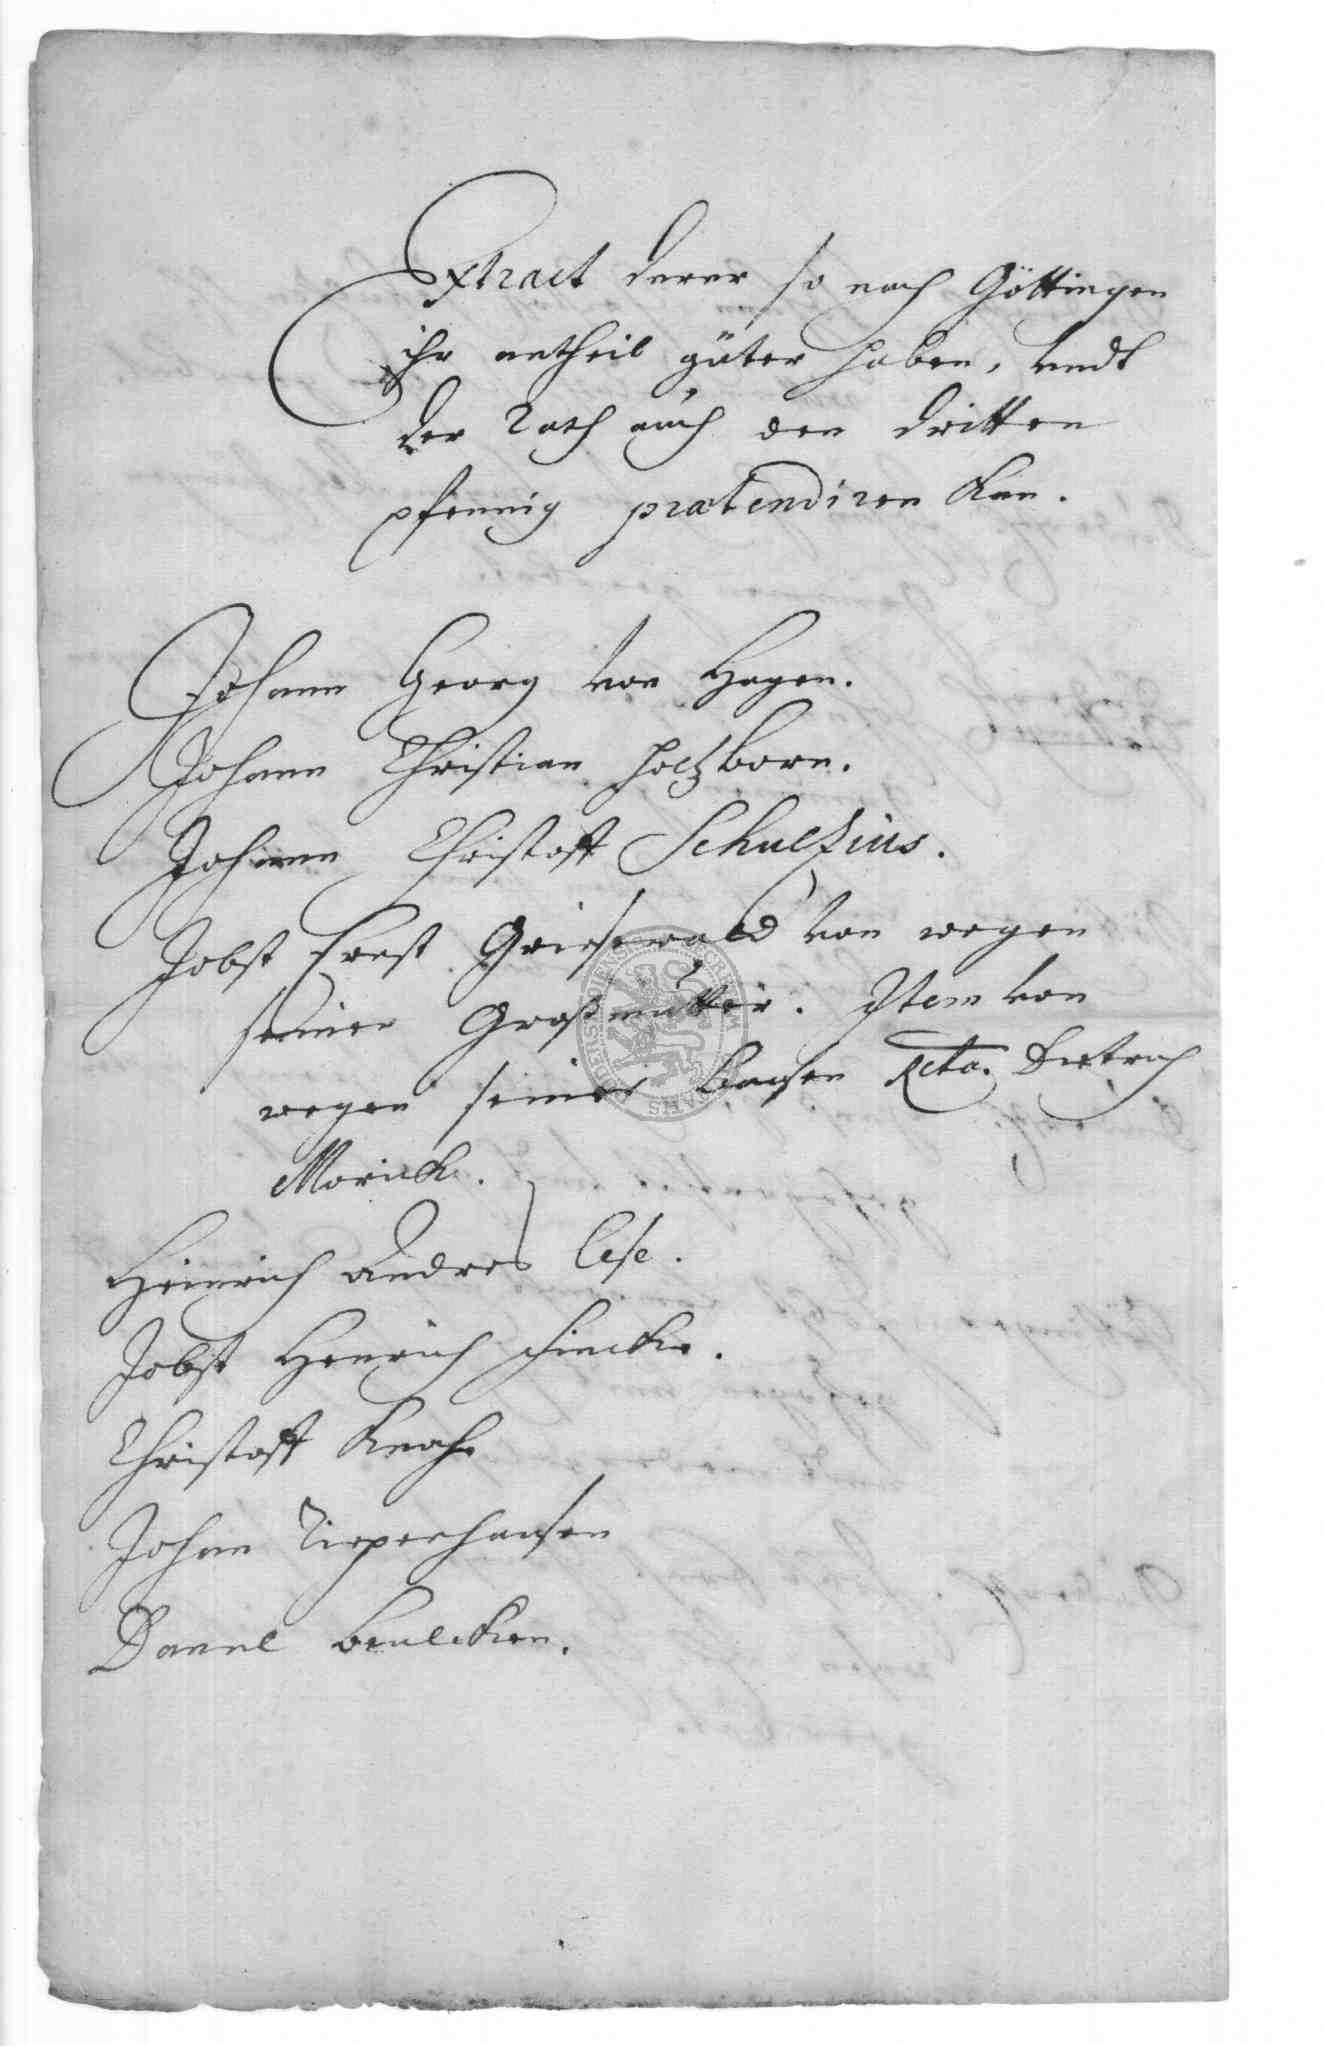 Extract derer so nach Göttingen
ihr antheil güter haben, undt
der Rath auch den dritten
pfennig prætendiren kan.
Johann Georg von Hagen.
Johann Christian Holtzborn.
Johann Christoff Schultzius.
Jobst Ernst Grisewald von wegen
seiner Großmutter. Item von
wegen seiner Basen Dietrich
Morick.
Heinrich Andres Cese.
Jobst Henrich
Christoff
Johan Tieperhausen
Daniel